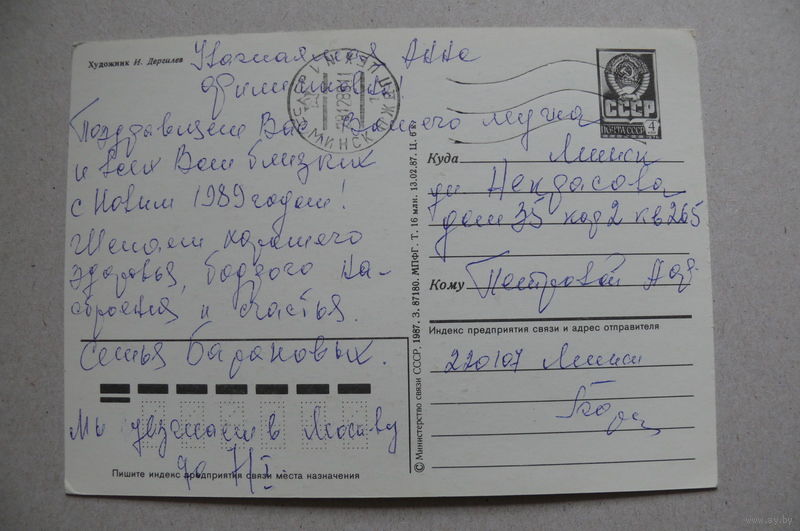 Художник И. Дергилев
Уважаемая Анна
Филипповна!
Поздравляем Вас Вашего мужа
и всех Ваш близких
с Новым 1989 годом!
Желаем хорошего
здоровья, бодрого на-
строения и счастья.
Семья Барановых.
Мы уезжаем в Москву
до
Пишите индекс предприятия связи места назначения
МИНСК
СССР
ПОЧТА СССР
4
Куда Минск
ул Некрасова
дом 35 кор 2 кв 265
Кому Петровой
Индекс предприятия связи и адрес отправителя
220107 Минск
© Министерство связи СССР, 1987. З. 87180. МПФГ. Т. 16 млн. 13.02.87. Ц. 6 к.
www.ay.by